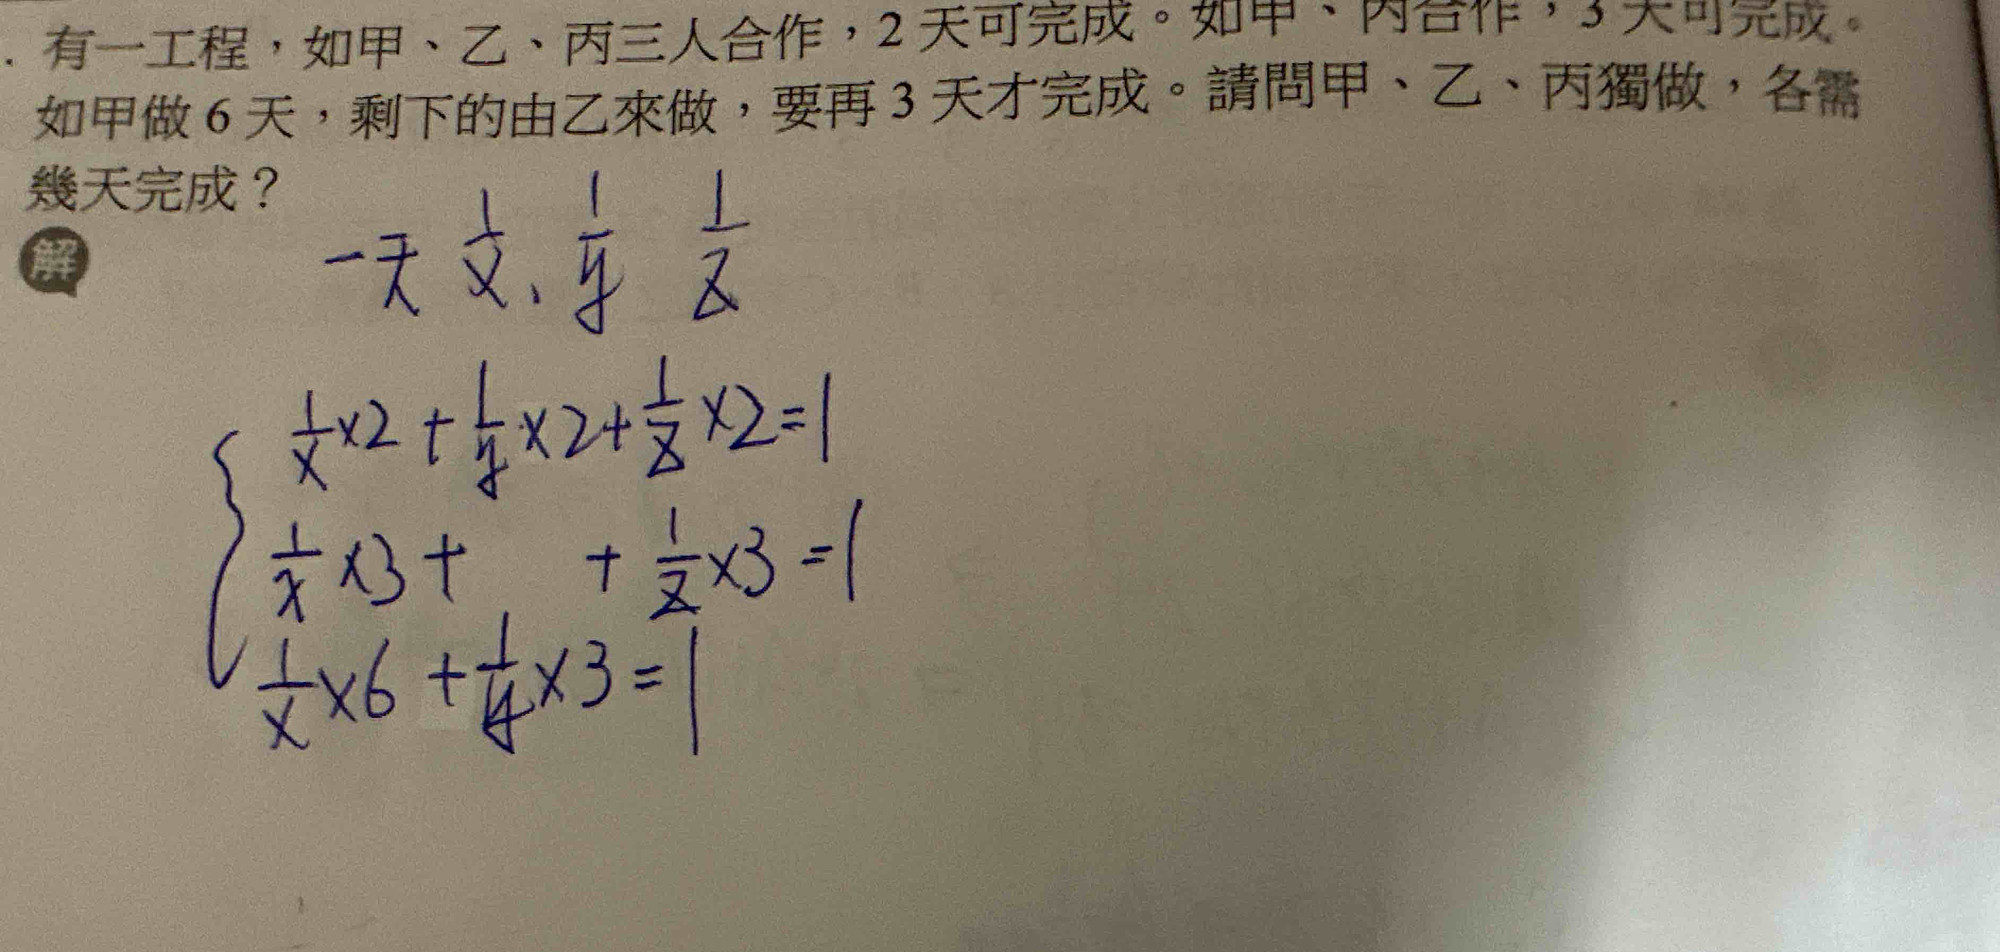 . 有一工程，如甲、乙、丙三人合作，2 天可完成。如甲、丙合作，3 天可完成。
如甲做 6 天，剩下的由乙來做，要再 3 天才完成。請問甲、乙、丙獨做，各需
幾天完成？
解
一天 1/x、1/y 1/z
{ 1/x ×2 + 1/y ×2 + 1/z ×2 = 1
1/x ×3 + + 1/z ×3 = 1
1/x ×6 + 1/y ×3 = 1